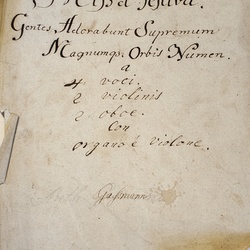 Missa Festiva.
Gentes Adorabunt Supremum
Magnumq; Orbis Numen.
a
4 voci.
2 violinis
2 oboe.
con
organo è Violone.
Gassmann